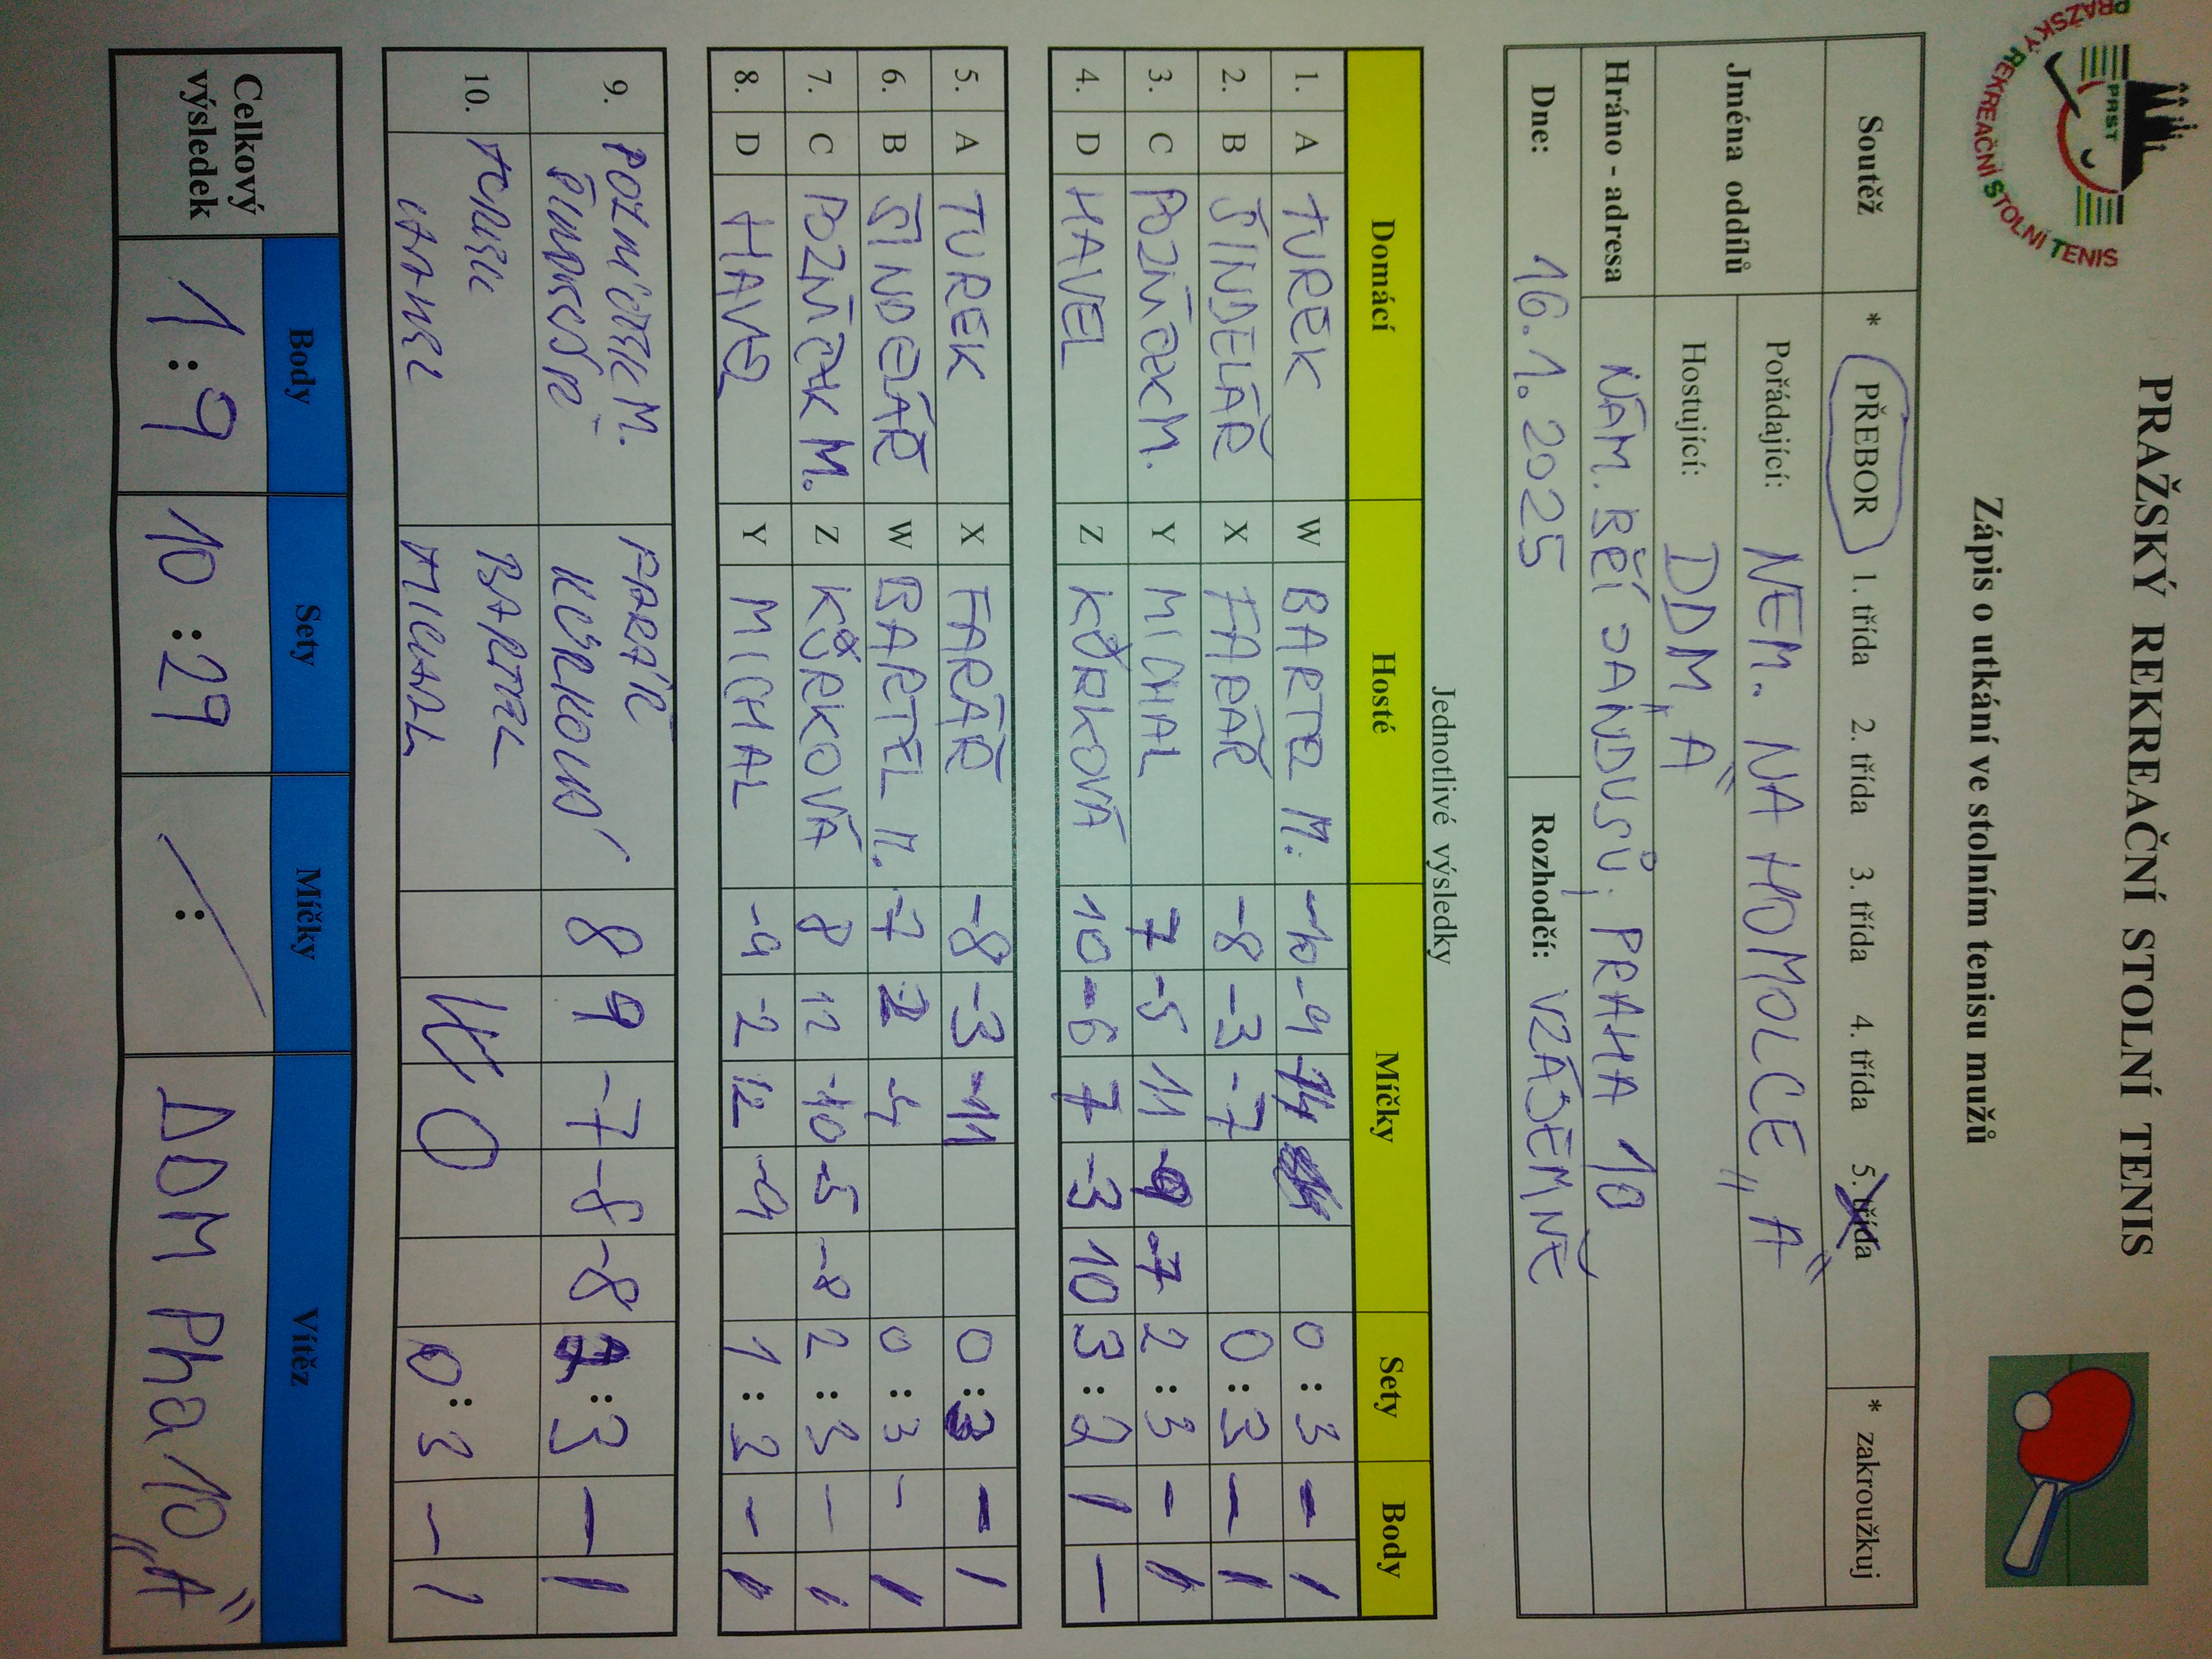 PRAŽSKÝ REKREAČNÍ STOLNÍ TENIS
PRST
PRAŽSKÝ REKREAČNÍ STOLNÍ TENIS
Zápis o utkání ve stolním tenisu mužů
Soutěž * PŘEBOR 1. třída 2. třída 3. třída 4. třída 5. třída * zakroužkuj
Jména oddílů
Pořádající: NEM. NA HOMOLCE „A"
Hostující: DDM „A"
Hráno - adresa NÁM. PRAHA 10
Dne: 16.1.2025 Rozhodčí: VZÁJEMNĚ
Jednotlivé výsledky
Domácí Hosté Míčky Sety Body
1. A TUREK W M. -10 -9 0 : 3 - 1
2. B ŠINDELÁŘ X FARÁŘ -8 -3 -7 0 : 3 - 1
3. C M. Y MICHAL 7 -5 11 -7 2 : 3 - 1
4. D HAVEL Z KŮRKOVÁ 10 -6 7 -3 10 3 : 2 1 -
5. A TUREK X FARÁŘ -8 -3 -11 0 : 3 - 1
6. B ŠINDELÁŘ W BARTEL M. -7 0 : 3 - 1
7. C M. Z KŮRKOVÁ 8 12 -10 -5 -8 2 : 3 - 1
8. D Y MICHAL -2 12 1 : - 1
9. M. FARÁŘ
KŮRKOVÁ 8 9 -7 -8 -8 2 : 3 - 1
10.
WO 0 : 3 - 1
Celkový výsledek
Body Sety Míčky Vítěz
1 : 9 10 : 29 : DDM Pha 10 „A"